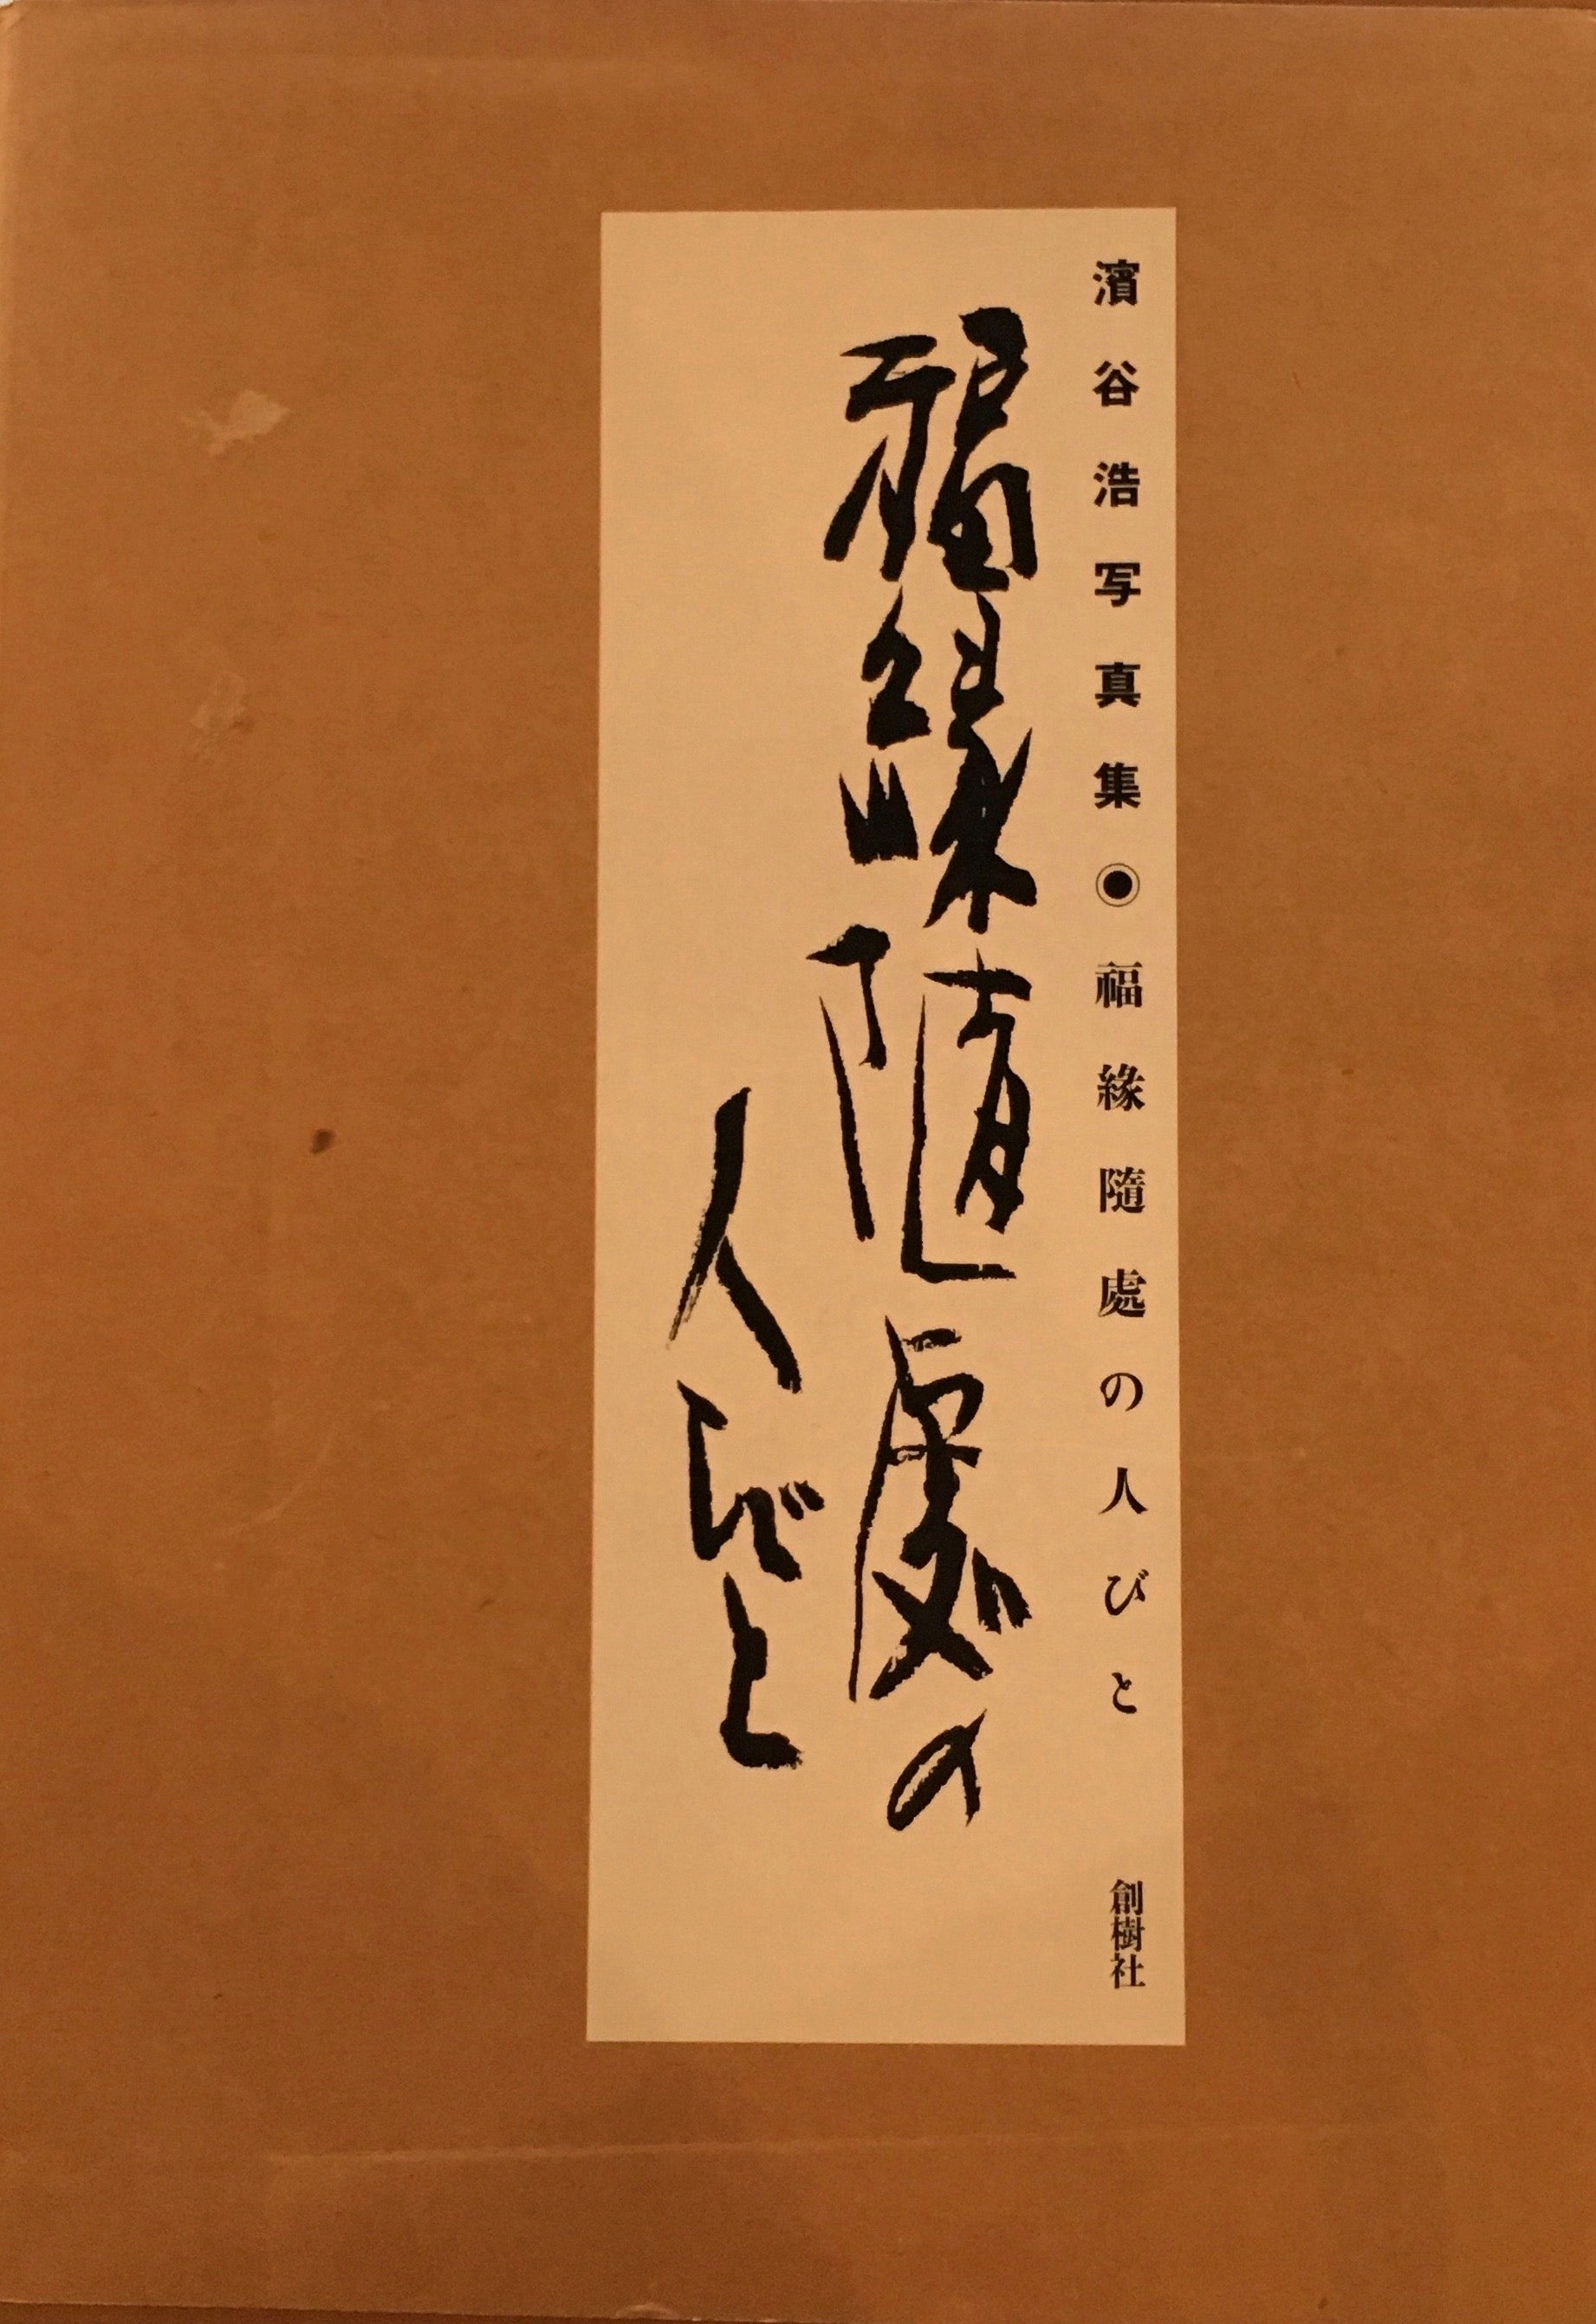 濱谷浩写真集◉福緣隨處の人びと 創樹社
福緣随處の
人びと